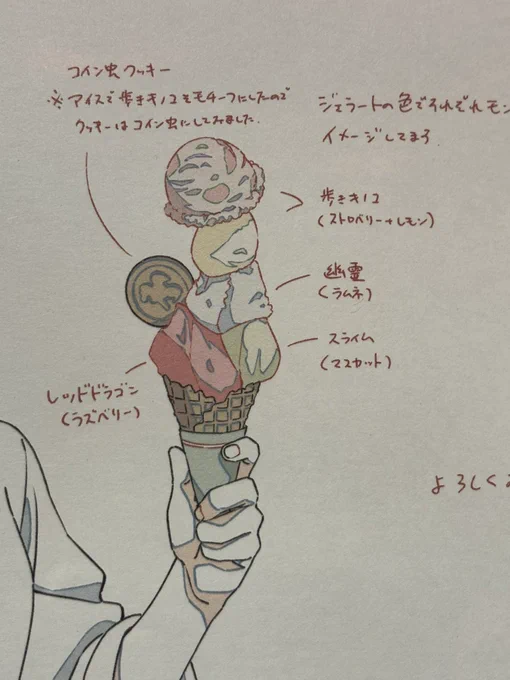 コイン虫クッキー
※アイスで歩きキノコをモチーフにしたので
クッキーはコイン虫にしてみました.
ジェラートの色でそれぞれモン
イメージしてます
歩きキノコ
(ストロベリー+レモン)
幽霊
(ラムネ)
スライム
(マスカット)
レッドドラゴン
(ラズベリー)
よろしく